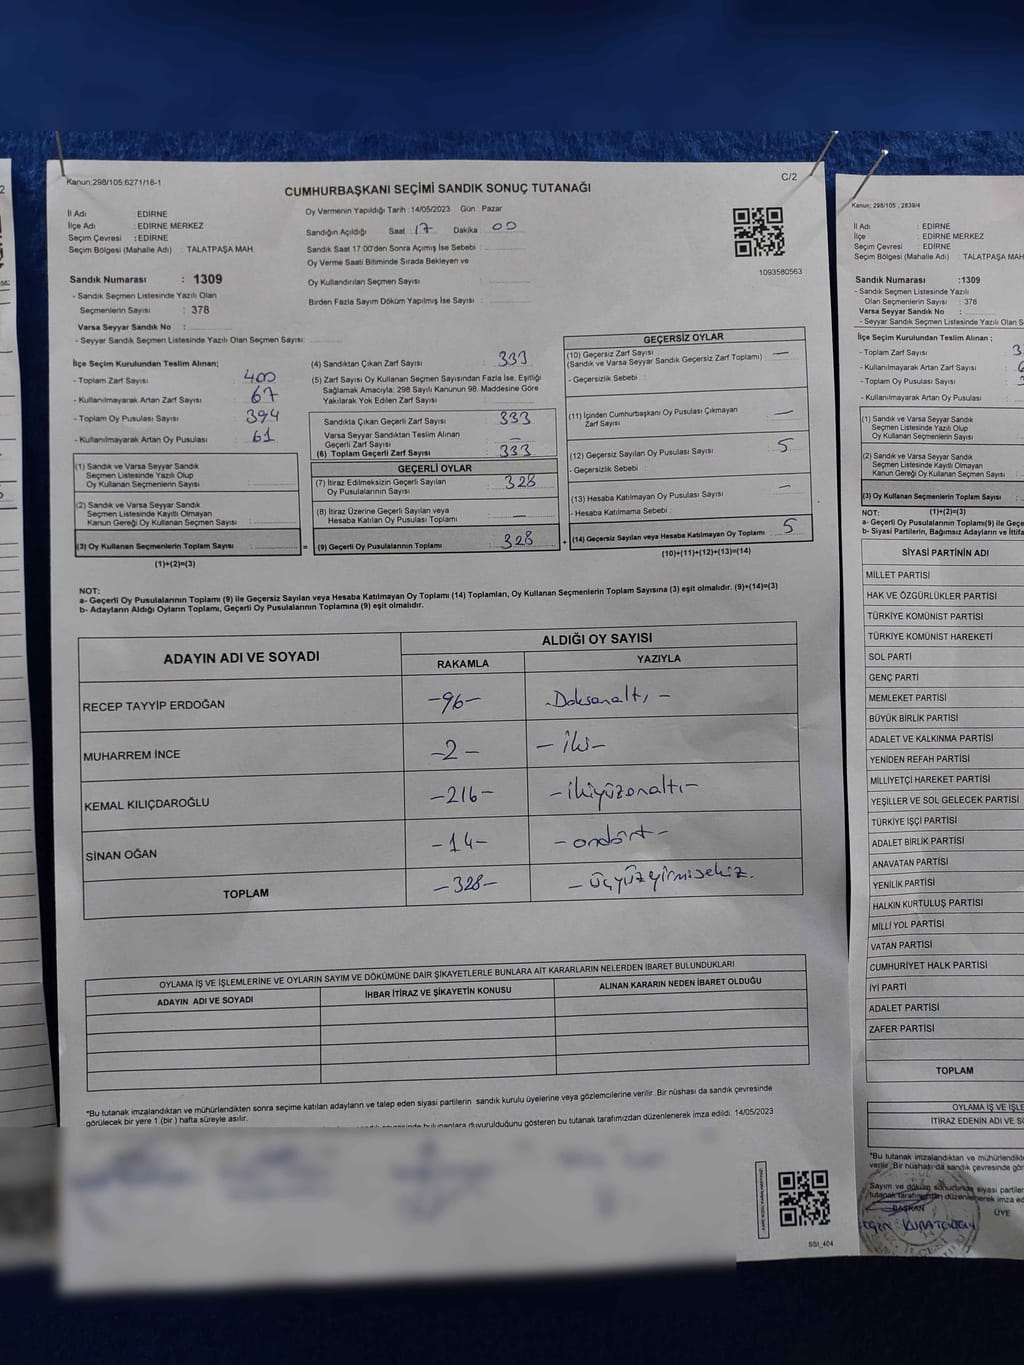 Kanun:298/105:6271/16-1
C/2
CUMHURBAŞKANI SEÇİMİ SANDIK SONUÇ TUTANAĞI
İl Adı EDİRNE
İlçe Adı : EDİRNE MERKEZ
Seçim Çevresi : EDİRNE
Seçim Bölgesi (Mahalle Adı) : TALATPAŞA MAH
Oy Vermenin Yapıldığı Tarih :14/05/2023 Gün : Pazar
Sandığın Açıldığı Saat 17 Dakika 00
Sandık Saat 17:00'den Sonra Açılmış İse Sebebi
Oy Verme Saati Bitiminde Sırada Bekleyen ve
Oy Kullandırılan Seçmen Sayısı :
Birden Fazla Sayım Döküm Yapılmış İse Sayısı :
1093580563
Sandık Numarası : 1309
- Sandık Seçmen Listesinde Yazılı Olan
Seçmenlerin Sayısı : 378
Varsa Seyyar Sandık No :
- Seyyar Sandık Seçmen Listesinde Yazılı Olan Seçmen Sayısı:
İlçe Seçim Kurulundan Teslim Alınan;
- Toplam Zarf Sayısı : 400
- Kullanılmayarak Artan Zarf Sayısı : 67
- Toplam Oy Pusulası Sayısı : 394
- Kullanılmayarak Artan Oy Pusulası : 61
(1) Sandık ve Varsa Seyyar Sandık
Seçmen Listesinde Yazılı Olup
Oy Kullanan Seçmenlerin Sayısı :
(2) Sandık ve Varsa Seyyar Sandık
Seçmen Listesinde Kayıtlı Olmayan
Kanun Gereği Oy Kullanan Seçmen Sayısı :
(3) Oy Kullanan Seçmenlerin Toplam Sayısı :
(1)+(2)=(3)
(4) Sandıktan Çıkan Zarf Sayısı : 333
(5) Zarf Sayısı Oy Kullanan Seçmen Sayısından Fazla İse, Eşitliği
Sağlamak Amacıyla; 298 Sayılı Kanunun 98. Maddesine Göre
Yakılarak Yok Edilen Zarf Sayısı :
Sandıkta Çıkan Geçerli Zarf Sayısı : 333
Varsa Seyyar Sandıktan Teslim Alınan
Geçerli Zarf Sayısı : —
(6) Toplam Geçerli Zarf Sayısı : 333
GEÇERLİ OYLAR
(7) İtiraz Edilmeksizin Geçerli Sayılan
Oy Pusulalarının Sayısı : 328
(8) İtiraz Üzerine Geçerli Sayılan veya
Hesaba Katılan Oy Pusulası Toplamı : —
= (9) Geçerli Oy Pusulalarının Toplamı : 328
GEÇERSİZ OYLAR
(10) Geçersiz Zarf Sayısı
(Sandık ve Varsa Seyyar Sandık Geçersiz Zarf Toplamı) : —
- Geçersizlik Sebebi :
(11) İçinden Cumhurbaşkanı Oy Pusulası Çıkmayan
Zarf Sayısı : —
(12) Geçersiz Sayılan Oy Pusulası Sayısı : 5
- Geçersizlik Sebebi :
(13) Hesaba Katılmayan Oy Pusulası Sayısı : —
- Hesaba Katılmama Sebebi :
+ (14) Geçersiz Sayılan veya Hesaba Katılmayan Oy Toplamı : 5
(10)+(11)+(12)+(13)=(14)
NOT:
a- Geçerli Oy Pusulalarının Toplamı (9) ile Geçersiz Sayılan veya Hesaba Katılmayan Oy Toplamı (14) Toplamları, Oy Kullanan Seçmenlerin Toplam Sayısına (3) eşit olmalıdır. (9)+(14)=(3)
b- Adayların Aldığı Oyların Toplamı, Geçerli Oy Pusulalarının Toplamına (9) eşit olmalıdır.
ADAYIN ADI VE SOYADI ALDIĞI OY SAYISI
RAKAMLA YAZIYLA
RECEP TAYYİP ERDOĞAN -96- -Doksanaltı-
MUHARREM İNCE -2- -iki-
KEMAL KILIÇDAROĞLU -216- -ikiyüzonaltı-
SİNAN OĞAN -14- -ondört-
TOPLAM -328- -üçyüzyirmisekiz.
OYLAMA İŞ VE İŞLEMLERİNE VE OYLARIN SAYIM VE DÖKÜMÜNE DAİR ŞİKAYETLERLE BUNLARA AİT KARARLARIN NELERDEN İBARET BULUNDUKLARI
ADAYIN ADI VE SOYADI İHBAR İTİRAZ VE ŞİKAYETİN KONUSU ALINAN KARARIN NEDEN İBARET OLDUĞU
*Bu tutanak imzalandıktan ve mühürlendikten sonra seçime katılan adayların ve talep eden siyasi partilerin sandık kurulu üyelerine veya gözlemcilerine verilir .Bir nüshası da sandık çevresinde
görülecek bir yere 1 (bir ) hafta süreyle asılır.
duyurulduğunu gösteren bu tutanak tarafımızdan düzenlenerek imza edildi. 14/05/2023
SSI_404
Kanun: 298/105 , 2839/4
İl Adı : EDİRNE
İlçe : EDİRNE MERKEZ
Seçim Çevresi : EDİRNE
Seçim Bölgesi (Mahalle Adı) : TALATPAŞA MAH
Sandık Numarası :1309
- Sandık Seçmen Listesinde Yazılı
Olan Seçmenlerin Sayısı : 378
Varsa Seyyar Sandık No :
- Seyyar Sandık Seçmen Listesinde Yazılı Olan
İlçe Seçim Kurulundan Teslim Alınan ;
- Toplam Zarf Sayısı : 3
- Kullanılmayarak Artan Zarf Sayısı :
- Toplam Oy Pusulası Sayısı :
(1) Sandık ve Varsa Seyyar Sandık
Seçmen Listesinde Yazılı Olup
Oy Kullanan Seçmenlerin Sayısı
(2) Sandık ve Varsa Seyyar Sandık
Seçmen Listesinde Kayıtlı Olmayan
Kanun Gereği Oy Kullanan Seçmen Sayısı
(3) Oy Kullanan Seçmenlerin Toplam Sayısı :
NOT: (1)+(2)=(3)
a- Geçerli Oy Pusulalarının Toplamı(9) ile
b- Siyasi Partilerin, Bağımsız Adayların ve
SİYASİ PARTİNİN ADI
MİLLET PARTİSİ
HAK VE ÖZGÜRLÜKLER PARTİSİ
TÜRKİYE KOMÜNİST PARTİSİ
TÜRKİYE KOMÜNİST HAREKETİ
SOL PARTİ
GENÇ PARTİ
MEMLEKET PARTİSİ
BÜYÜK BİRLİK PARTİSİ
ADALET VE KALKINMA PARTİSİ
YENİDEN REFAH PARTİSİ
MİLLİYETÇİ HAREKET PARTİSİ
YEŞİLLER VE SOL GELECEK PARTİSİ
TÜRKİYE İŞÇİ PARTİSİ
ADALET BİRLİK PARTİSİ
ANAVATAN PARTİSİ
YENİLİK PARTİSİ
HALKIN KURTULUŞ PARTİSİ
MİLLİ YOL PARTİSİ
VATAN PARTİSİ
CUMHURİYET HALK PARTİSİ
İYİ PARTİ
ADALET PARTİSİ
ZAFER PARTİSİ
TOPLAM
OYLAMA İŞ VE
İTİRAZ EDENİN ADI VE
*Bu tutanak imzalandıktan ve
verilir .Bir nüshası da sandık çevresinde
Sayım ve döküm sonucunda siyasi
tutanak tarafımızdan düzenlenerek imza
BAŞKAN ÜYE